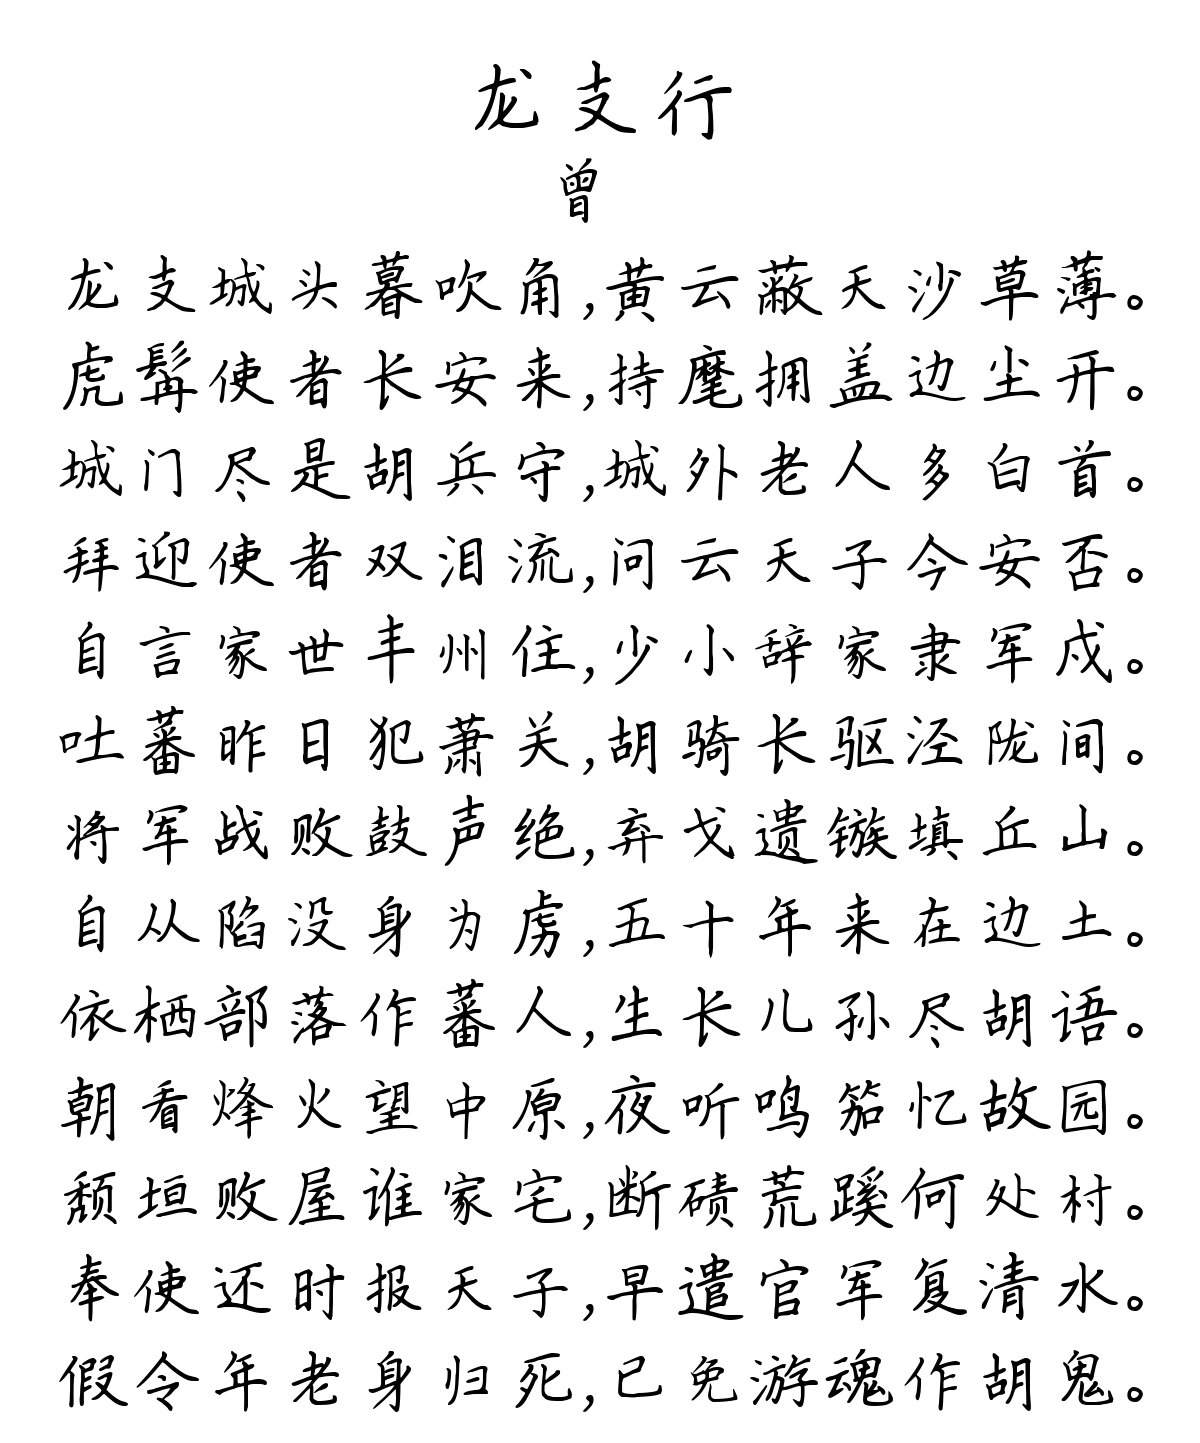 龙支行
曾
龙支城头暮吹角,黄云蔽天沙草薄。
虎髯使者长安来,持麾拥盖边尘开。
城门尽是胡兵守,城外老人多白首。
拜迎使者双泪流,问云天子今安否。
自言家世丰州住,少小辞家隶军戍。
吐蕃昨日犯萧关,胡骑长驱泾陇间。
将军战败鼓声绝,弃戈遗镞填丘山。
自从陷没身为虏,五十年来在边土。
依栖部落作蕃人,生长儿孙尽胡语。
朝看烽火望中原,夜听鸣笳忆故园。
颓垣败屋谁家宅,断碛荒蹊何处村。
奉使还时报天子,早遣官军复清水。
假令年老身归死,已免游魂作胡鬼。